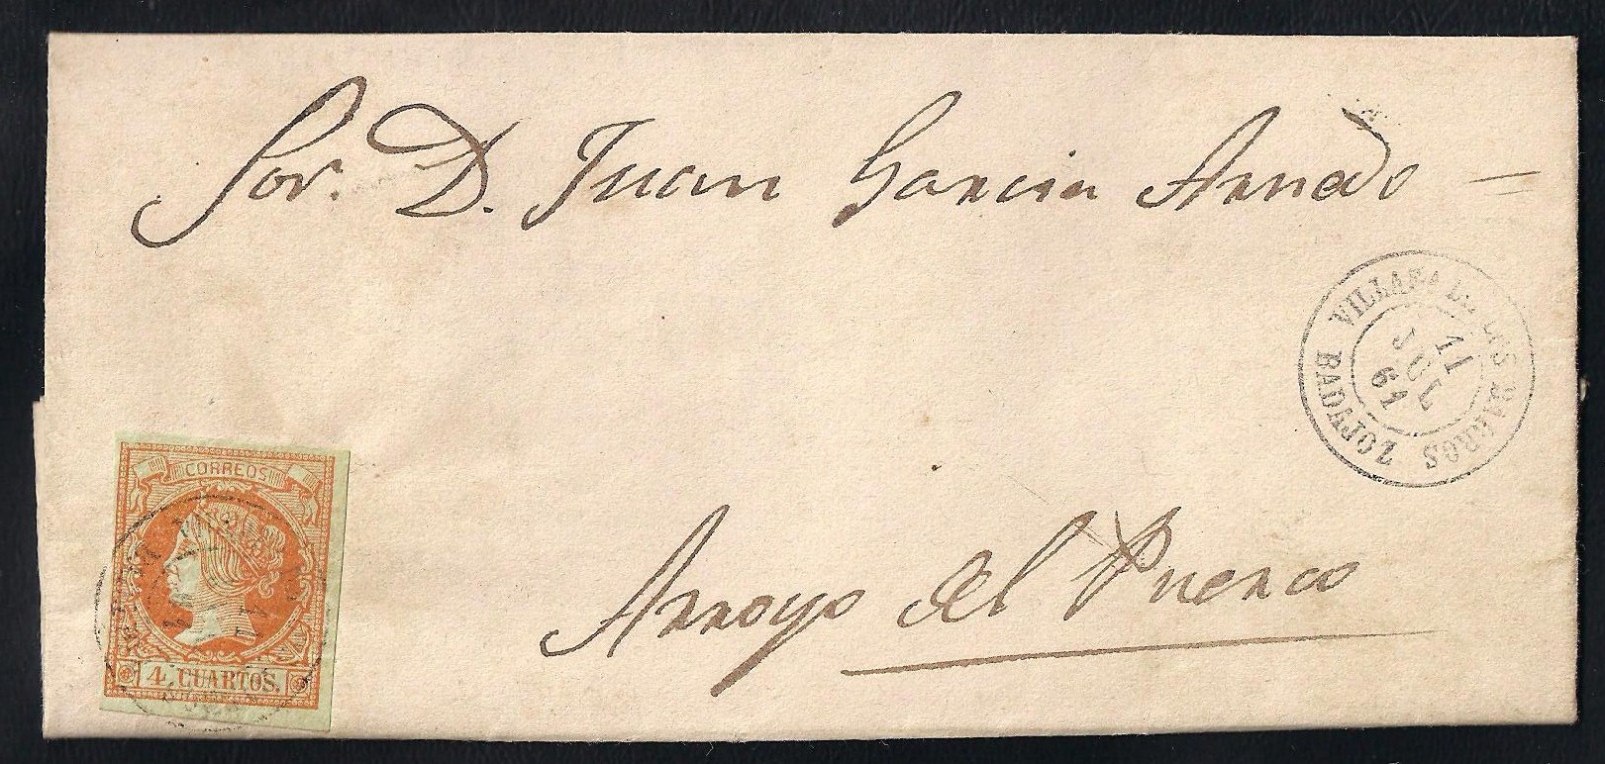 Sor. D. Juan Garcia Arnedo =
VILLAFA DE LOS BARROS
11
JUL
61
BADAJOZ
CORREOS
11
4 CUARTOS.
Arroyo del Puerco